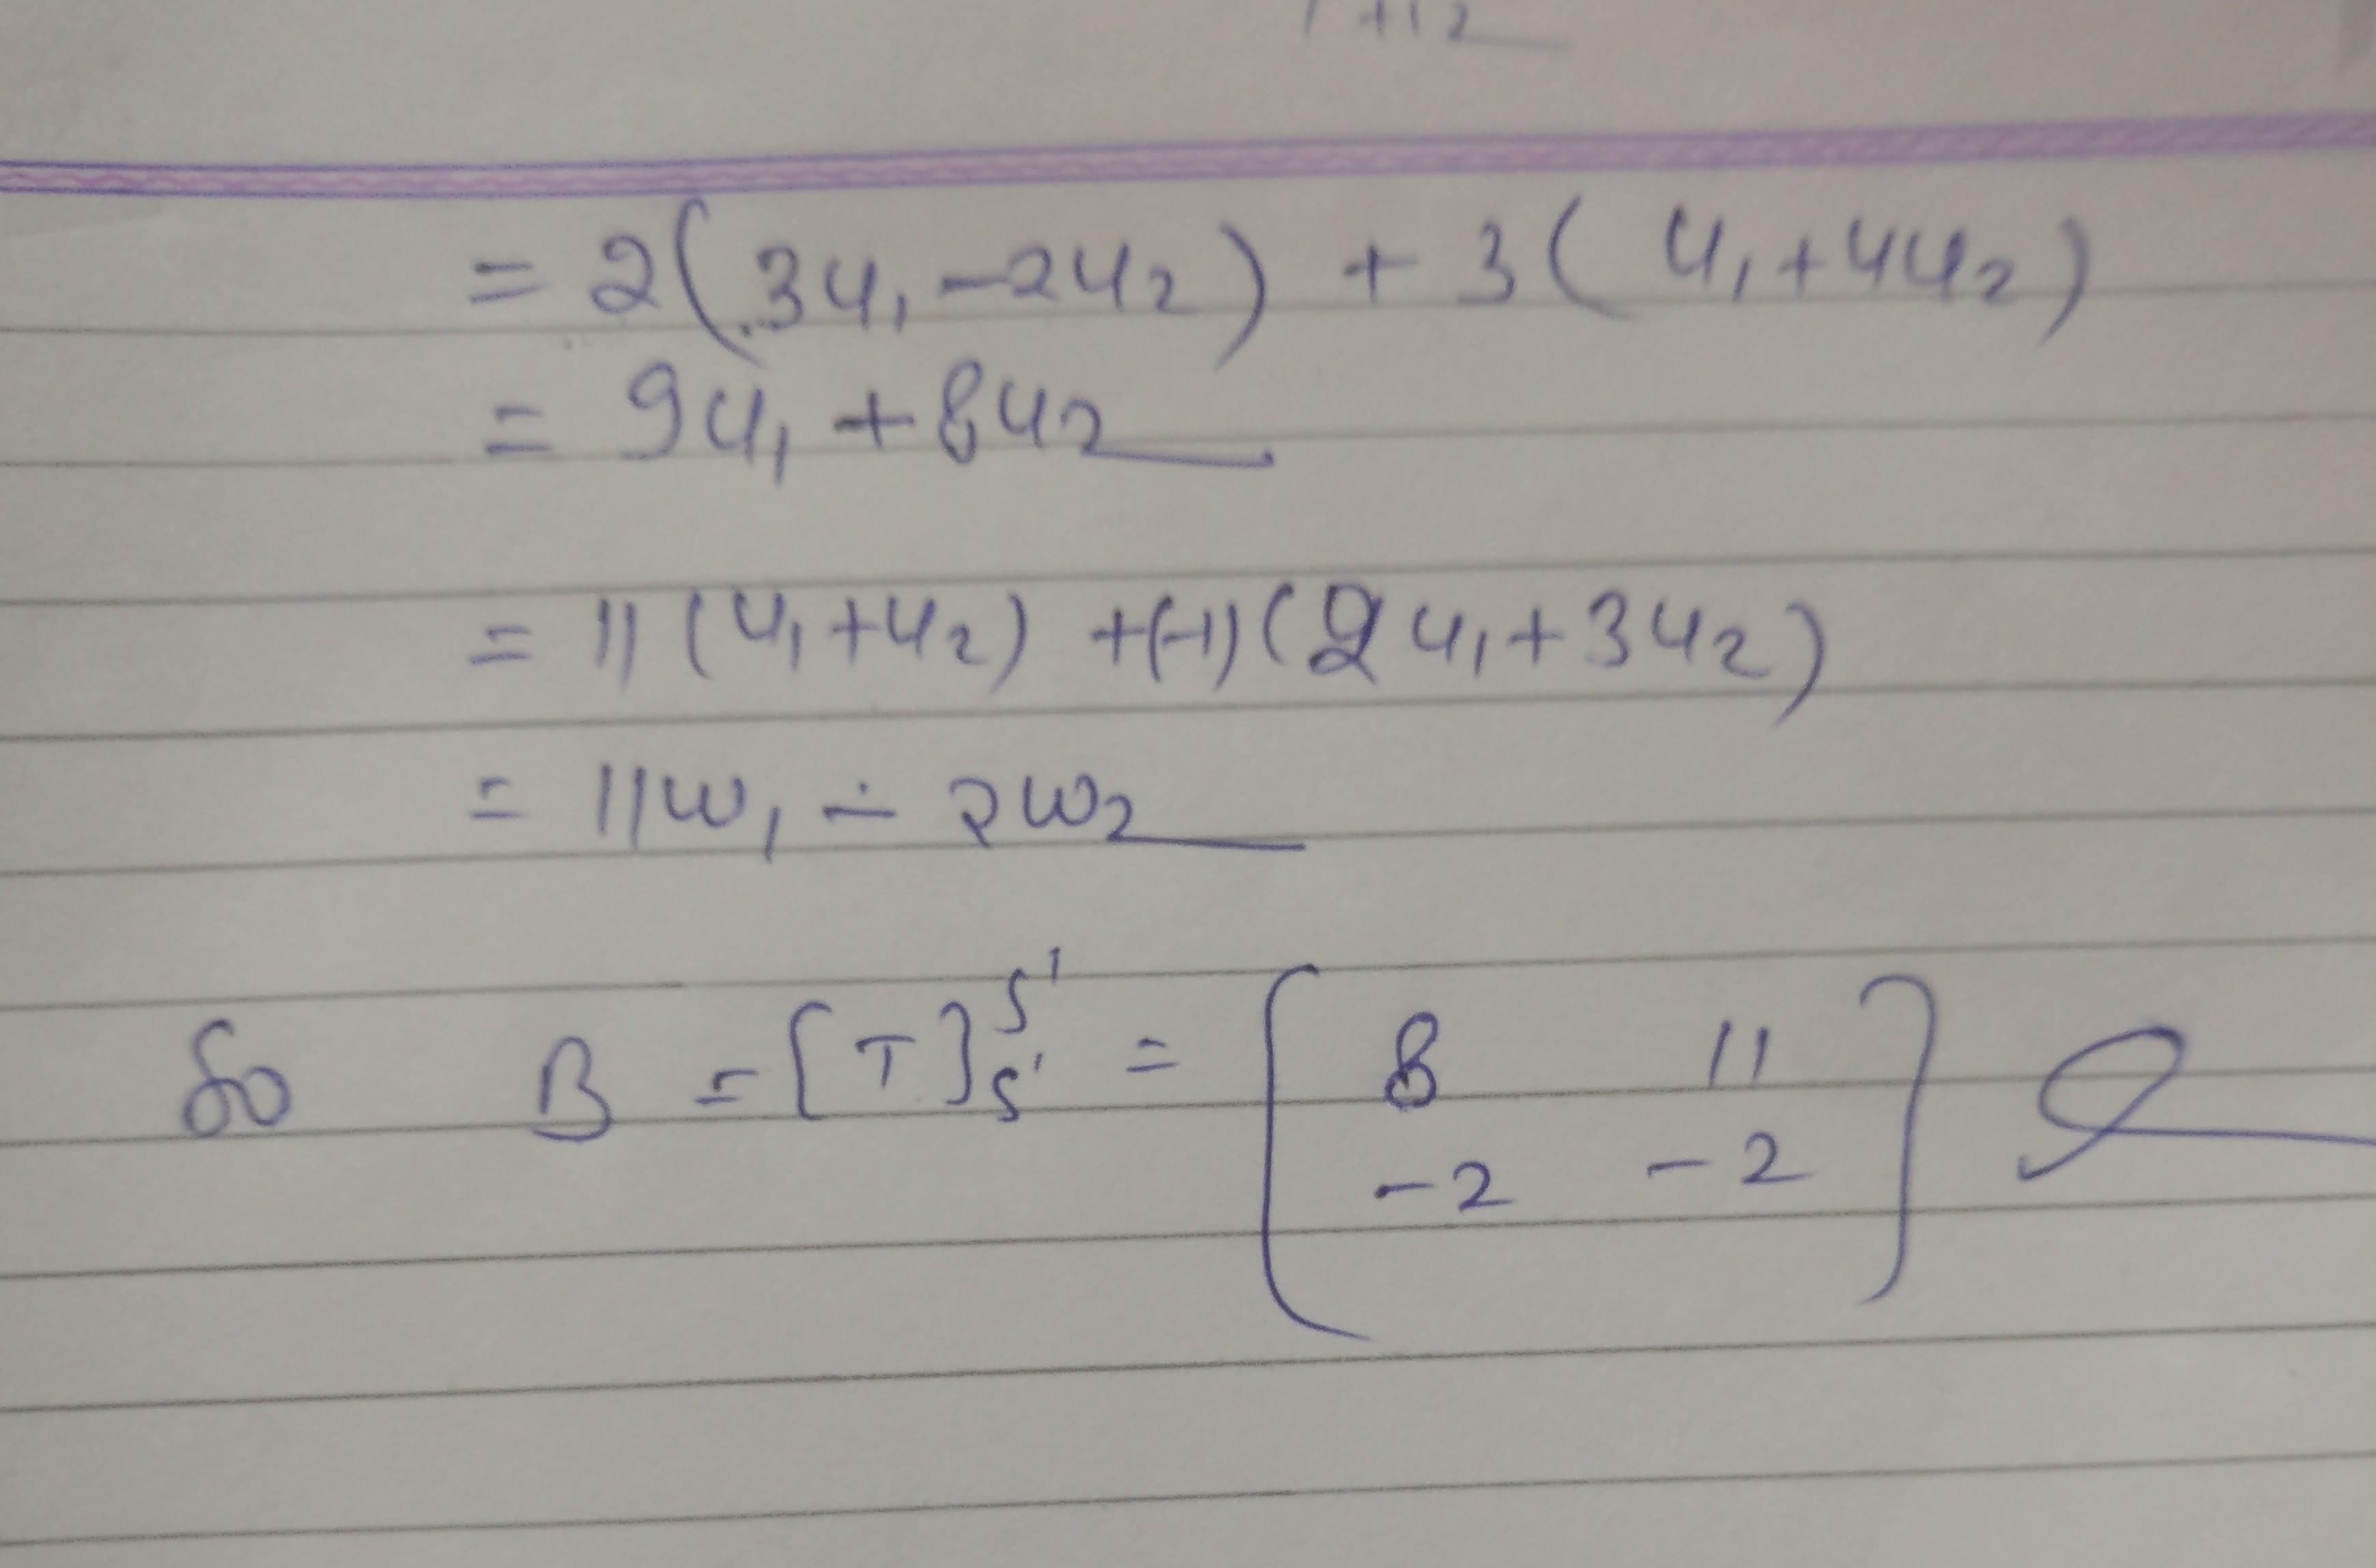 = 2(3u₁ - 2u₂) + 3(u₁ + 4u₂)
= 9u₁ + 8u₂
= 11(u₁ + u₂) + (-1)(2u₁ + 3u₂)
= 11w₁ - 2w₂
So B = [T]ₛ'ˢ' = [8 11
-2 -2]